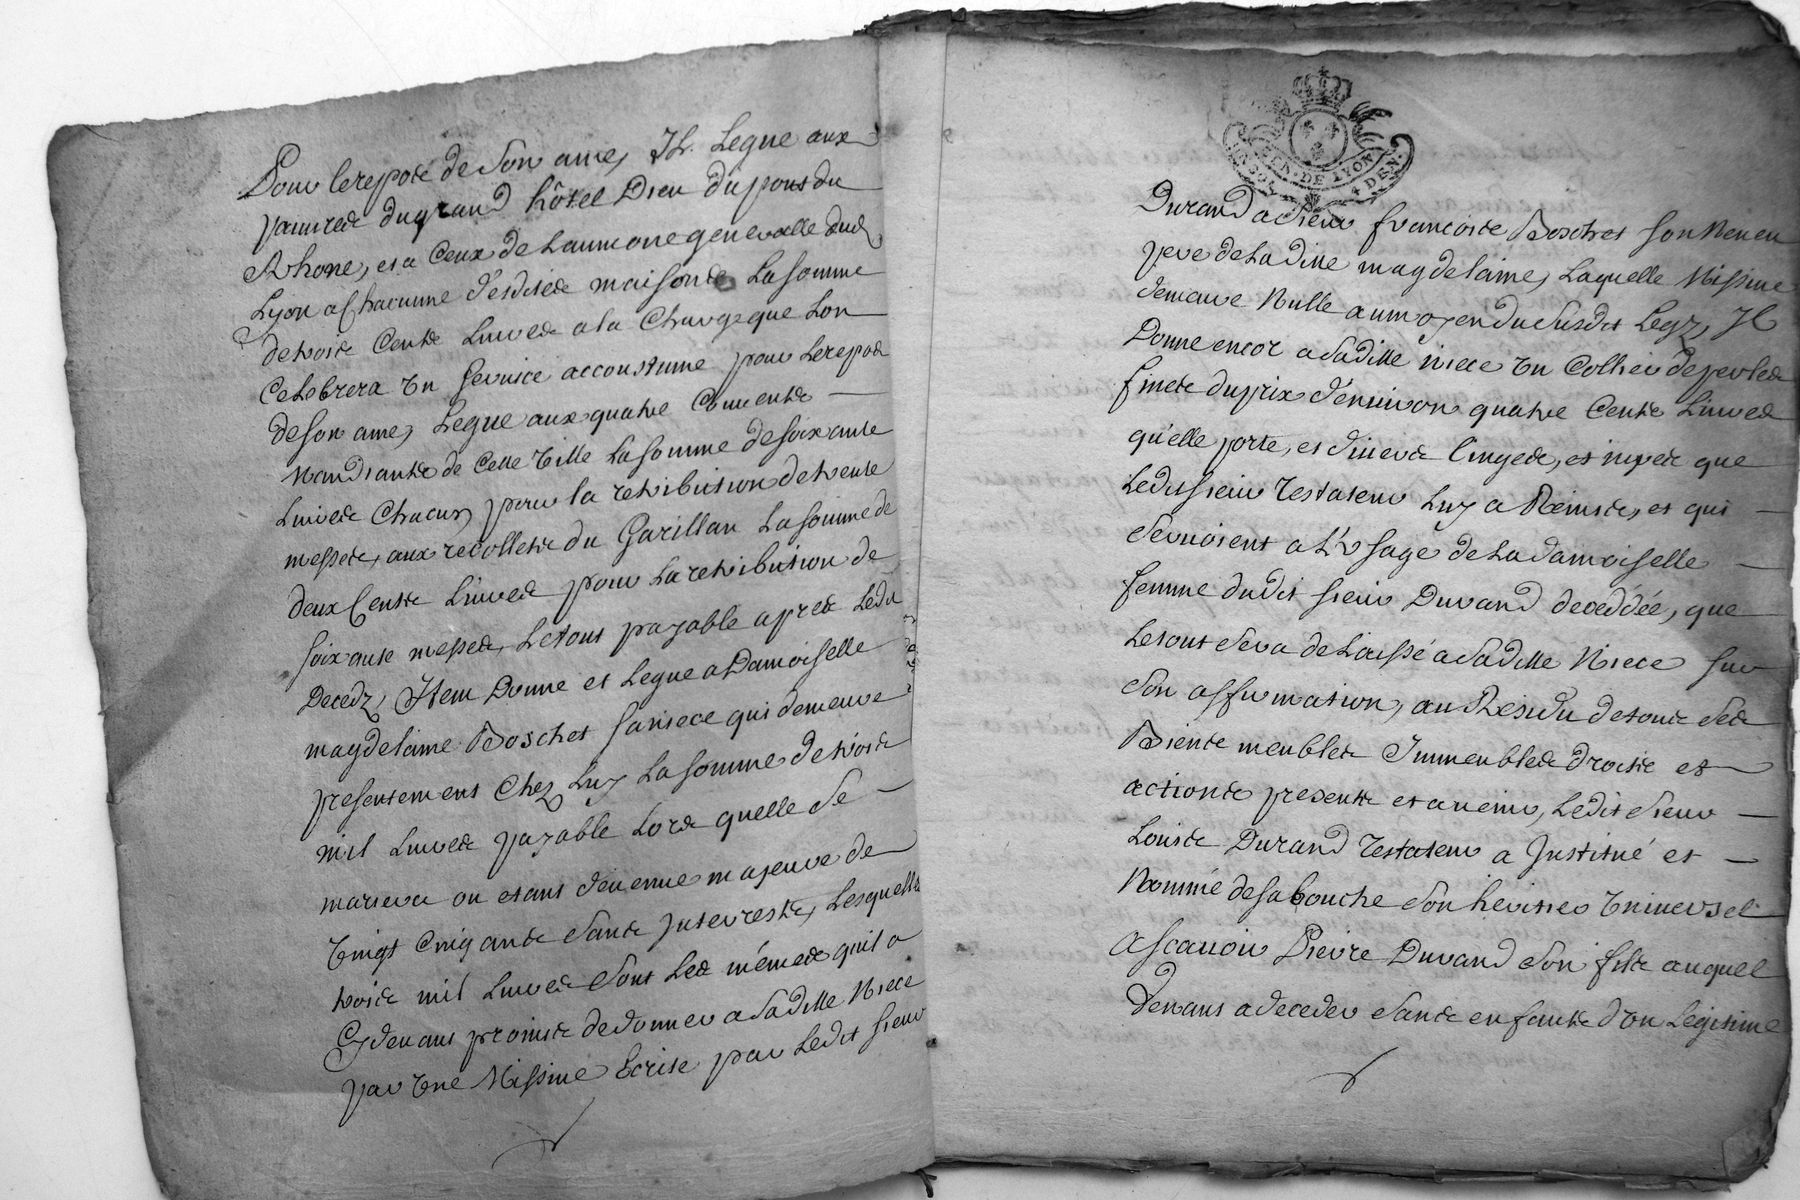 Pour le repos de son ame, Il Legue aux
pauvres du grand hôtel Dieu du pont du
Rhone, et a Ceux de Laumone generalle dud
Lyon a Chacunne desdites maisons La somme
de trois Cents Livres a la Charge que Lon
Celebrera un service accoustumé pour Le repos
de son ame, Legue aux quatre Couvents
Mandiants de Cette Ville La somme de soixante
Livres Chacun pour la retribution de trente
messes, aux recollets du Garillan La somme de
deux Cents Livres pour La retribution de
soixante messes, Le tout payable apres Ledit
Decedz, Item Donne et Legue a Damoiselle
magdelaine Boschet sa niece qui demeure
presentement Chez Luy La somme de trois
mil Livres payable Lors quelle se
mariera ou etant devenue majeure de
Vingt Cinq ans sans Interrests, Lesquelles
trois mil Livres sont Les mémes quil a
Cydevant promis de donner a sa ditte Niece
par Une Missive Ecrite par Ledit sieur
GEN. DE LYON
Durand a sieur françois Boschet son Neveu
pere de La ditte magdelaine, Laquelle Missive
demeure Nulle au moyen du susdit Legz, Il
Donne encor a sa ditte niece un Collier de perles
fines du prix d'environ quatre Cents Livres
qu'elle porte, et divers linges, et nipes que
Ledit sieur Testateur Luy a Remis, et qui
servoient a L'Usage de La damoiselle
femme dudit sieur Durand decedée, que
Le tout sera de Laissé a sa ditte Niece sur
son affirmation, au Residu de tous ses
Biens meubles Immeubles droits et
actions presents et avenir, Ledit sieur
Louis Durand Testateur a Institué et
Nommé de sa bouche son héritier Universel
a scavoir Pierre Durand son fils auquel
Venant a deceder sans enfants d'un Legitime